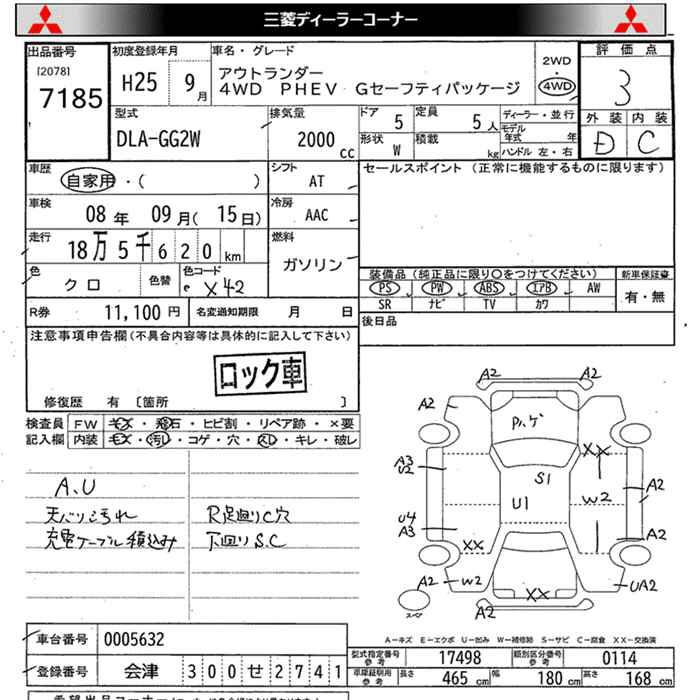 三菱ディーラーコーナー
出品番号 初度登録年月 車名・グレード 評価点
[2078] 7185 H25 9月 アウトランダー 2WD 4WD 3
4WD PHEV Gセーフティパッケージ
型式 排気量 ドア 5 定員 5人 ディーラー・並行 外装 内装
DLA-GG2W 2000cc 形状 W 積載 kg モデル年式 年 D C
ハンドル 左・右
車歴 自家用・( ) シフト AT セールスポイント (正常に機能するものに限ります)
車検 08年 09月(15日) 冷房 AAC
走行 18万5千620km 燃料 ガソリン
色 クロ 色替 色コード X42 装備品(純正品に限り○をつけてください) 新車保証書
PS PW ABS エアB AW 有・無
SR ナビ TV カワ
R券 11,100円 名変通知期限 月 日 後日品
注意事項申告欄(不具合内容等は具体的に記入して下さい)
ロック車
修復歴 有 [箇所 ]
検査員 FW キズ・飛石・ヒビ割・リペア跡・×要
記入欄 内装 キズ・汚レ・コゲ・穴・スレ・キレ・破レ
A、U
天バリ汚れ R足廻りC穴
充電ケーブル積込み 下廻りS.C
A2 A2
A2 A2
P.ハゲ
XX
A3
U2 S1
U1 W2 A2
U4
A3 A2
XX
A2 W2 XX UA2
A2
スペア
A－キズ E－エクボ U－凹み W－補修跡 S－サビ C－腐食 XX－交換済
車台番号 0005632 型式指定番号 参考 17498 類別区分番号 参考 0114
登録番号 会津 300せ2741 車庫証明用 参考 長さ 465cm 幅 180cm 高さ 168cm
希望出品コーナー